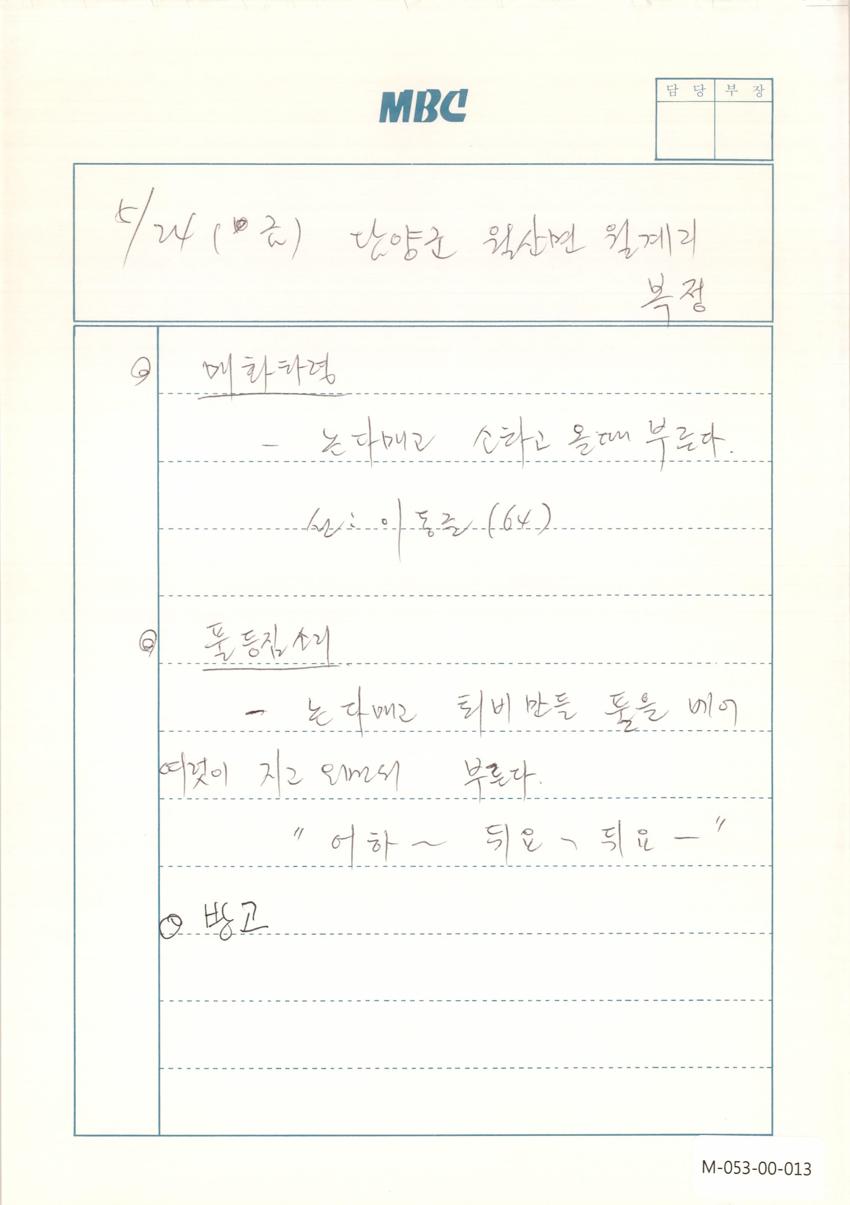 MBC
담 당 부 장
5/24 (금) 담양군 월산면 월계리
복정
매화타령
- 논다매고 소타고 올때 부른다.
선: 이동근 (64)
풀등짐소리
- 논다매고 퇴비만들 풀을 베어
여럿이 지고 오면서 부른다.
" 어하~ 뒤요ㄱ 뒤요 ー "
방고
M-053-00-013